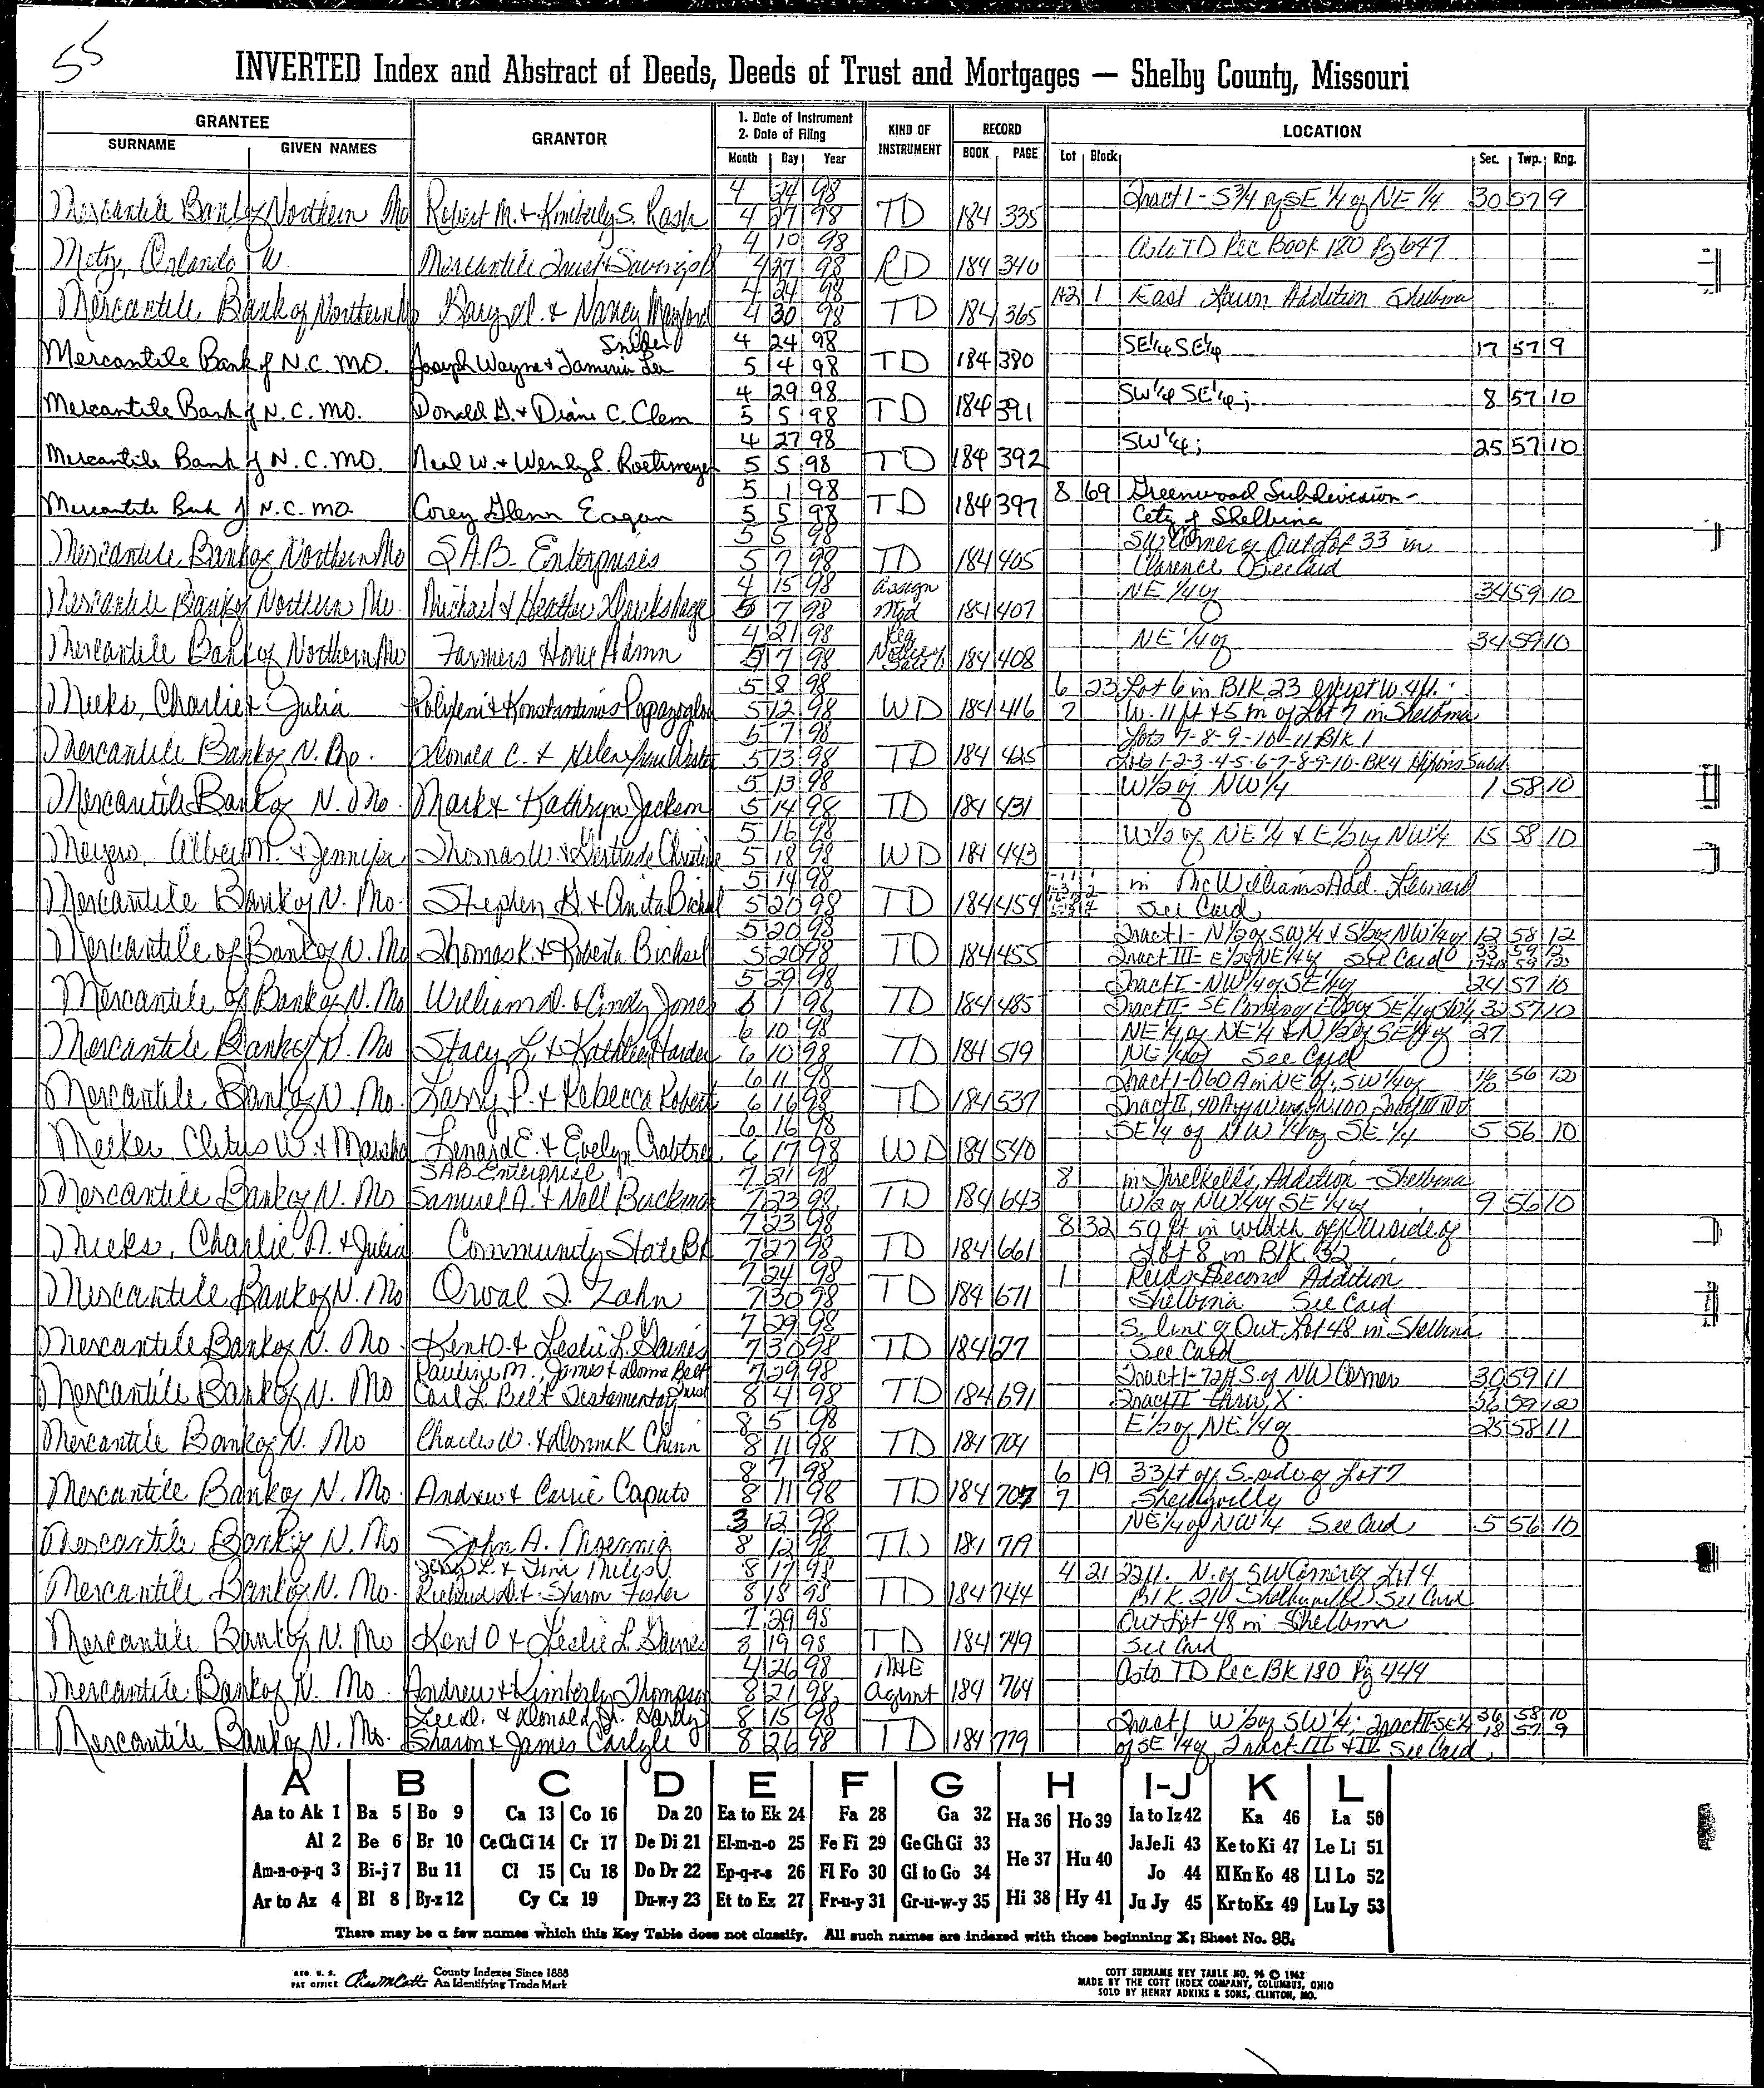 55
INVERTED Index and Abstract of Deeds, Deeds of Trust and Mortgages — Shelby County, Missouri
GRANTEE GRANTOR 1. Date of Instrument 2. Date of Filing KIND OF INSTRUMENT RECORD LOCATION
SURNAME GIVEN NAMES Month Day Year BOOK PAGE Lot Block Sec. Twp. Rng.
4 24 98 Tract 1 - S 3/4 of SE 1/4 of NE 1/4 30 57 9
Mercantile Bank of Northern Mo Robert M. & Kimberly S. Rash 4 27 98 TD 184 335
4 10 98 As to TD Rec Book 180 Pg 647
Motz, Orlando W. Mercantile Trust & Savings 4 27 98 RD 184 340
4 24 98 1+2 1 East Lawn Addition Shelbina
Mercantile Bank of Northern Mo & Nancy 4 30 98 TD 184 365
Snider 4 24 98 SE 1/4 SE 1/4 17 57 9
Mercantile Bank of N.C. MO. Joseph Wayne & 5 4 98 TD 184 380
4 29 98 SW 1/4 SE 1/4; 8 57 10
Mercantile Bank of N.C. MO. Donald G. & Diane C. Clem 5 5 98 TD 184 391
4 27 98 SW 1/4; 25 57 10
Mercantile Bank of N.C. MO. Neal W. & Wendy L. 5 5 98 TD 184 392
5 1 98 8 69 Greenwood Subdivision -
Mercantile Bank of N.C. MO. Corey Glenn Eagan 5 5 98 TD 184 397 City of Shelbina
5 5 98 SW Corner of Out Lot 33 in
Mercantile Bank of Northern Mo S.A.B. Enterprises 5 7 98 TD 184 405 Clarence See Card
4 15 98 Assign NE 1/4 of 34 59 10
Mercantile Bank of Northern Mo. Michael & Heather 5 7 98 184 407
4 21 98 NE 1/4 of 34 59 10
Mercantile Bank of Northern Mo Farmers Home Admn 5 7 98 184 408
5 8 98 6 23 Lot 6 in Blk 23 except W. 4 ft.
Meeks, Charlie & Julia Polyxeni & Konstantinos Papazoglou 5 12 98 WD 184 416 7 W. 11 ft & 5 in of Lot 7 in Shelbina
5 7 98 Lots 7-8-9-10-11 Blk 1
Mercantile Bank of N. Mo. Donald C. & Helen 5 13 98 TD 184 425 Lots 1-2-3-4-5-6-7-8-9-10- BK 4 Subd.
5 13 98 W 1/2 of NW 1/4 1 58 10
Mercantile Bank of N. Mo. Mark & Kathryn Jackson 5 14 98 TD 184 431
5 16 98 W 1/2 of NE 1/4 & E 1/2 of NW 1/4 15 58 10
Meyers, Albert M. & Jennifer Thomas W. & Gertrude Christine 5 18 98 WD 184 443
5 14 98 in McWilliams Add. Leonard
Mercantile Bank of N. Mo. Stephen & Anita Bichsel 5 20 98 TD 184 454 See Card
5 20 98 Tract I - N 1/2 of SW 1/4 & S 1/2 of NW 1/4 of 12 58 12
Mercantile of Bank of N. Mo Thomas K. & Roberta Bichsel 5 20 98 TD 184 455 Tract III - E 1/2 of NE 1/4 of See Card
5 29 98 Tract I - NW 1/4 of SE 1/4 24 57 10
Mercantile of Bank of N. Mo William D. & Cindy Jones 6 1 98 TD 184 485 Tract II - SE Corner of 32 57 10
6 10 98 NE 1/4 of NE 1/4 & N 1/2 of SE 1/4 of 27
Mercantile Bank of N. Mo Stacy L. & Kathleen Harder 6 10 98 TD 184 519 NE 1/4 of See Card
6 11 98 Tract 1 - 0.60 A in NE of SW 1/4 of 56 12
Mercantile Bank of N. Mo. Larry P. & Rebecca Robert 6 16 98 TD 184 537
6 16 98 SE 1/4 of NW 1/4 of SE 1/4 5 56 10
Meeker, Cletus W. & Marsha Lenard E. & Evelyn Crabtree 6 17 98 WD 184 540
SAB Enterprise 7 21 98 8 in Threlkeld's Addition - Shelbina
Mercantile Bank of N. Mo Samuel A. & Nell Buckman 7 23 98 TD 184 643 W 1/2 of NW 1/4 of SE 1/4 of 9 56 10
7 23 98 8 32 50 ft in width off side of
Meeks, Charlie & Julia Community State Bk 7 27 98 TD 184 661 Lot 8 in Blk 32
7 24 98 1 Reids Second Addition
Mercantile Bank of N. Mo Orval J. Zahn 7 30 98 TD 184 671 Shelbina See Card
7 29 98 S. line of Out Lot 48 in Shelbina
Mercantile Bank of N. Mo. Kent O. & Leslie L. Gaines 7 30 98 TD 184 677 See Card
Pauline M., James & Donna Belt 7 29 98 Tract I - 72 ft S. of NW Corner 30 59 11
Mercantile Bank of N. Mo Carl L. Belt Testamentary Trust 8 4 98 TD 184 691 Tract II thru X. 36 59 12
8 5 98 E 1/2 of NE 1/4 of 25 58 11
Mercantile Bank of N. Mo Charles W. & Donna K Chinn 8 11 98 TD 184 704
8 7 98 6 19 33 ft off S. side of Lot 7
Mercantile Bank of N. Mo. Andrew & Carrie Caputo 8 11 98 TD 184 707 7 Shelbyville
3 12 98 NE 1/4 of NW 1/4 See Card 5 56 10
Mercantile Bank of N. Mo John A. 8 12 98 TD 184 719
L. & Tina Miles 8 17 98 4 21 22 ft. N. of SW Corner of Lot 4
Mercantile Bank of N. Mo. Richard D. & Sharon Fisher 8 18 98 TD 184 744 Blk. 21 Shelbyville See Card
7 29 98 Out Lot 48 in Shelbina
Mercantile Bank of N. Mo Kent O & Leslie L. Gaines 8 19 98 TD 184 749 See Card
4 26 98 As to TD Rec Bk 180 Pg 444
Mercantile Bank of N. Mo. Andrew & Kimberly Thompson 8 21 98 Agmnt 184 764
& Donald Hardy 8 15 98 Tract I W 1/2 of SW 1/4; Tract II - SE 1/4 36 58 10 18 57 9
Mercantile Bank of N. Mo. Sharon & James Carlyle 8 26 98 TD 184 779 of SE 1/4 of, Tract III & IV See Card
A B C D E F G H I-J K L
Aa to Ak 1 Ba 5 Bo 9 Ca 13 Co 16 Da 20 Ea to Ek 24 Fa 28 Ga 32 Ha 36 Ho 39 Ia to Iz 42 Ka 46 La 50
Al 2 Be 6 Br 10 Ce Ch Ci 14 Cr 17 De Di 21 El-m-n-o 25 Fe Fi 29 Ge Gh Gi 33 He 37 Hu 40 Ja Je Ji 43 Ke to Ki 47 Le Li 51
Am-n-o-p-q 3 Bi-j 7 Bu 11 Cl 15 Cu 18 Do Dr 22 Ep-q-r-s 26 Fl Fo 30 Gl to Go 34 Jo 44 Kl Kn Ko 48 Ll Lo 52
Ar to Az 4 Bl 8 By-z 12 Cy Cz 19 Du-w-y 23 Et to Ez 27 Fr-u-y 31 Gr-u-w-y 35 Hi 38 Hy 41 Ju Jy 45 Kr to Kz 49 Lu Ly 53
There may be a few names which this Key Table does not classify. All such names are indexed with those beginning X; Sheet No. 95.
REG. U. S. PAT OFFICE County Indexes Since 1888 An Identifying Trade Mark
COTT SURNAME KEY TABLE NO. 96 © 1962
MADE BY THE COTT INDEX COMPANY, COLUMBUS, OHIO
SOLD BY HENRY ADKINS & SONS, CLINTON, MO.